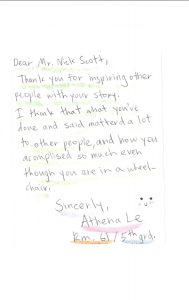 Dear Mr. Nick Scott,
Thank you for inspiring other
people with your story.
I think that what you've
done and said matterd a lot
to other people, and how you
acomplised so much even
though you are in a wheel-
chair.
Sincerly,
Athena Le
Rm. 61 / 5th grd.